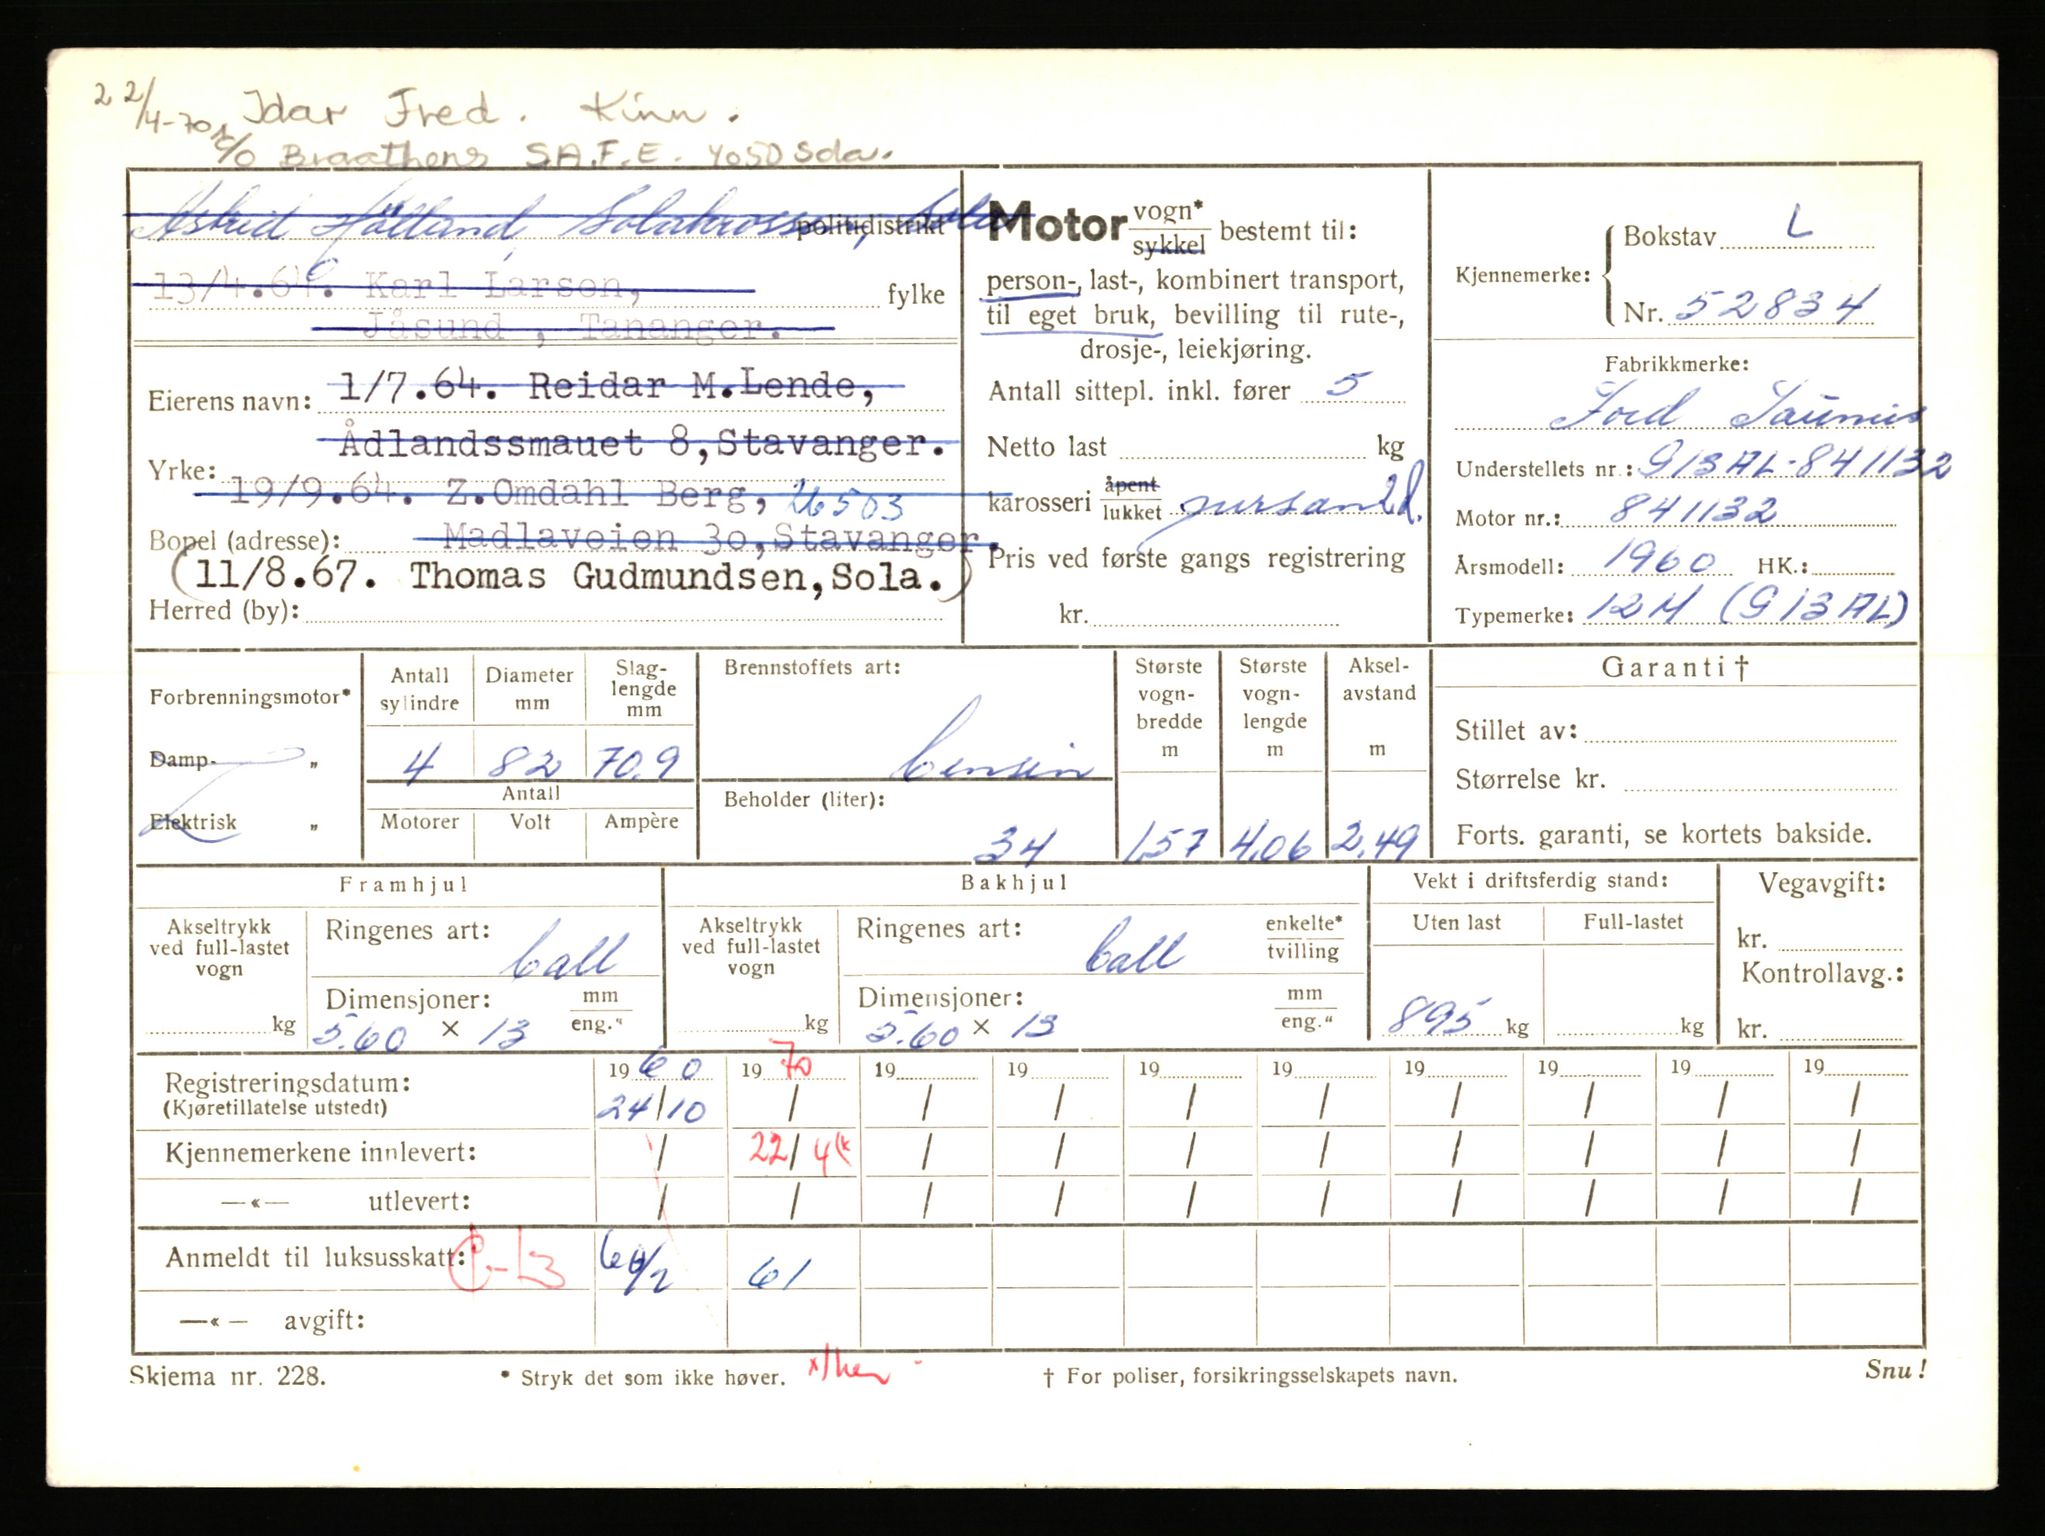 22/4-70 Idar Fred. Kinn.
c/o Braathens S.A.F.E. 4050 Sola.
Astrid Hålland, Solakrossen, Sola
politidistrikt
13/4.61. Karl Larsen,
fylke
Jåsund, Tananger.
Eierens navn: 1/7.64. Reidar M.Lende,
Ådlandssmauet 8,Stavanger.
Yrke:
19/9.64. Z.Omdahl Berg, 26503
Bopel (adresse): Madlaveien 30,Stavanger.
(11/8.67. Thomas Gudmundsen,Sola.)
Herred (by):
Motor vogn* sykkel bestemt til:
person-, last-, kombinert transport,
til eget bruk, bevilling til rute-,
drosje-, leiekjøring.
Antall sittepl. inkl. fører 5
Netto last kg
karosseri åpent lukket personb.
Pris ved første gangs registrering
kr.
Kjennemerke: Bokstav L
Nr. 52834
Fabrikkmerke:
Ford Taunus
Understellets nr.: G13AL-841132
Motor nr.: 841132
Årsmodell: 1960 HK.:
Typemerke: 12M (G13AL)
Forbrenningsmotor*
Damp- „
Elektrisk „
Antall sylindre 4
Diameter mm 82
Slag-lengde mm 70,9
Antall
Motorer Volt Ampère
Brennstoffets art: bensin
Beholder (liter): 34
Største vogn-bredde m 1,57
Største vogn-lengde m 4,06
Aksel-avstand m 2,49
Garanti †
Stillet av:
Størrelse kr.
Forts. garanti, se kortets bakside.
Framhjul
Akseltrykk ved full-lastet vogn kg
Ringenes art: ball
Dimensjoner: mm eng."
5.60 × 13
Bakhjul
Akseltrykk ved full-lastet vogn kg
Ringenes art: ball enkelte* tvilling
Dimensjoner: mm eng."
5.60 × 13
Vekt i driftsferdig stand:
Uten last Full-lastet
895 kg kg
Vegavgift:
kr.
Kontrollavg.:
kr.
Registreringsdatum: 1960 1970 19 19 19 19 19 19 19 19
(Kjøretillatelse utstedt) 24/10 / / / / / / / / /
Kjennemerkene innlevert: / 22/4 / / / / / / / /
—«— utlevert: / / / / / / / / / /
Anmeldt til luksusskatt: 60/2 61
—«— avgift:
Skjema nr. 228.
* Stryk det som ikke høver.
† For poliser, forsikringsselskapets navn.
Snu!